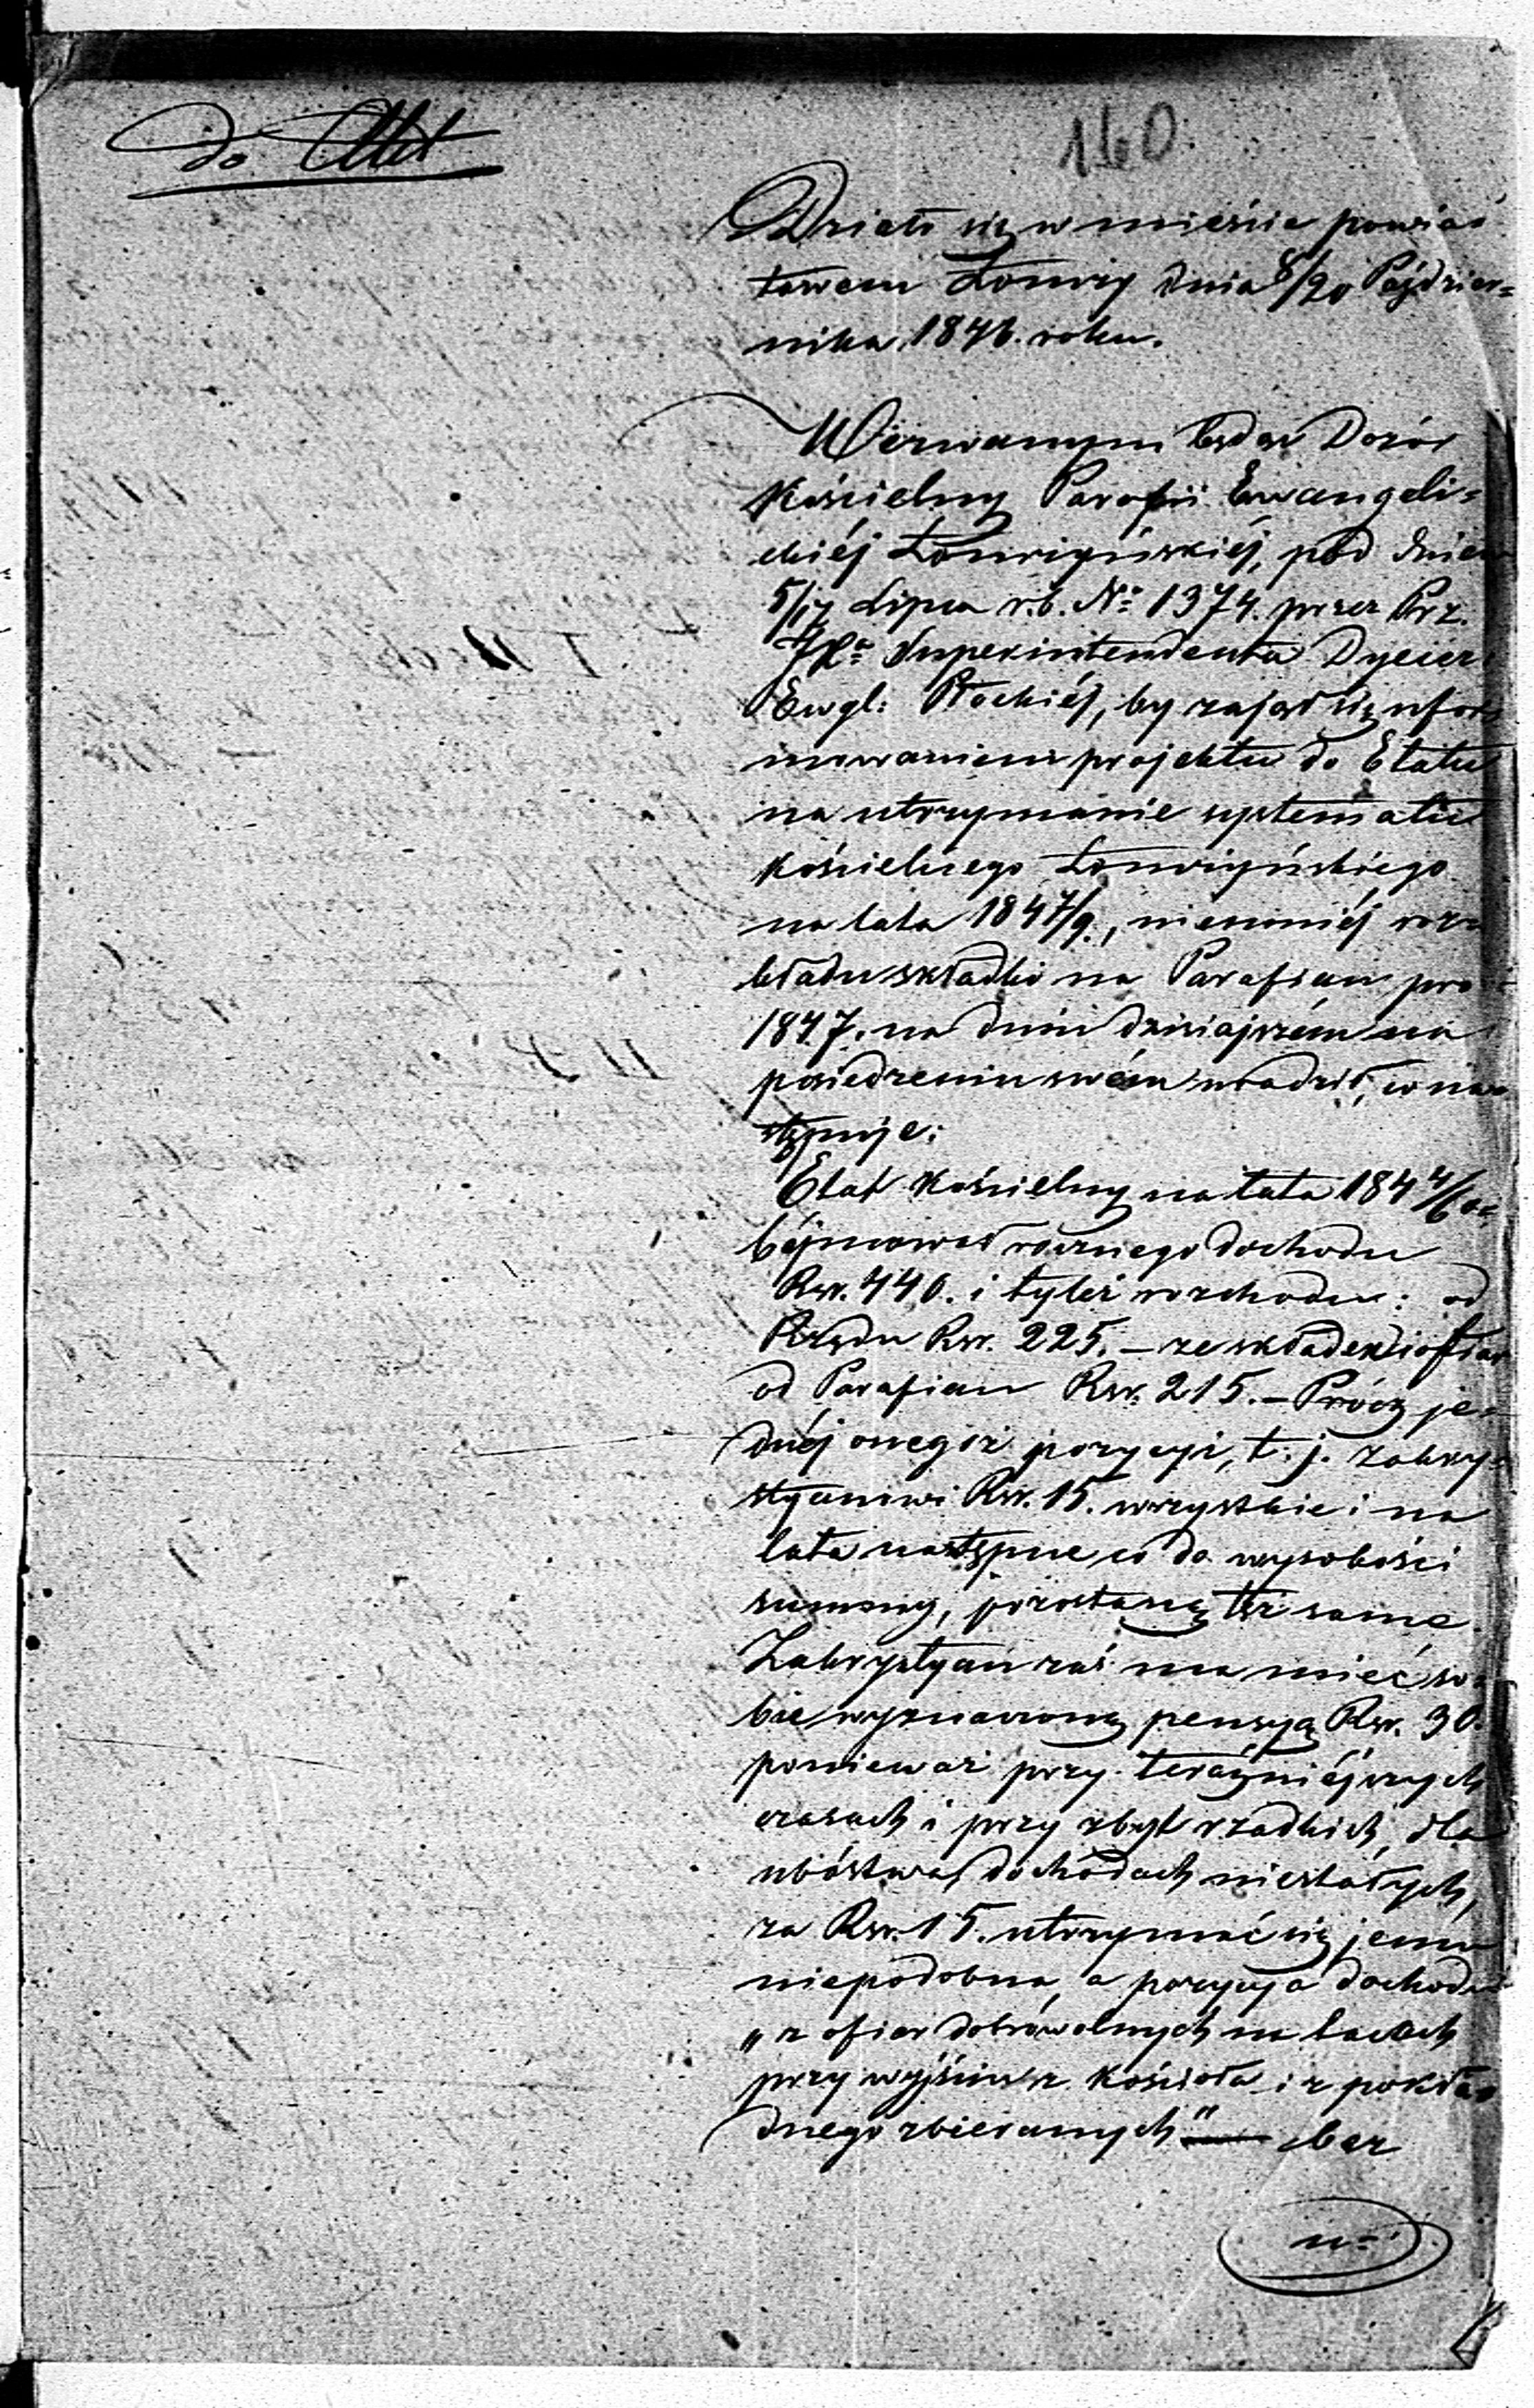 do Akt
160
Działo się w mieście powia-
towem Łowiczu dnia 8/20 Paździer=
nika 1846. roku.
Wezwanym będąc Dozór
Kościelny Parafii Ewangeli=
ckiéj Łowi
skiéj, pod dniem
5/17 Lipca r. b. No 1374. przez Prz.
JXa Superintendenta Dyecez:
Ewgl: Płockiéj, by zajął się ufor
mowaniem projektu do Etatu
na utrzymanie systematu
kościelnego
na lata 1847/9., niemniéj roz=
kładu składki na Parafian pro
1847. na dniu dzisiajszém na
posiedzeniu swém uradził, co na=
stępuje:
Etat kościelny na lata 1844/6 o=
béjmował rocznego dochodu
Rsr. 440. i tyleż rozchodu: od
Rządu Rsr. 225. – ze składek i ofiar
od Parafian Rsr. 215. – Prócz je=
dnéj onegoż pozycyi, t. j. zakry=
styanowi Rsr. 15. wszystkie i na
lata następne co do wysokości
summy, pozostaną też same.
Zakrystyan zaś ma mieć so=
bie wyznaczoną pensyą Rsr. 30.
ponieważ przy teraźniéjszych
czasach i przy zbyt rzadkich, dla
ubóstwa, dochodach niestałych,
za Rsr. 15. utrzymać się jemu
niepodobna, a pozycya dochodu
„z ofiar dobrowolnych na tacach
przy wyjściu z kościoła i z pokła=
dnego zbieranych" — bez